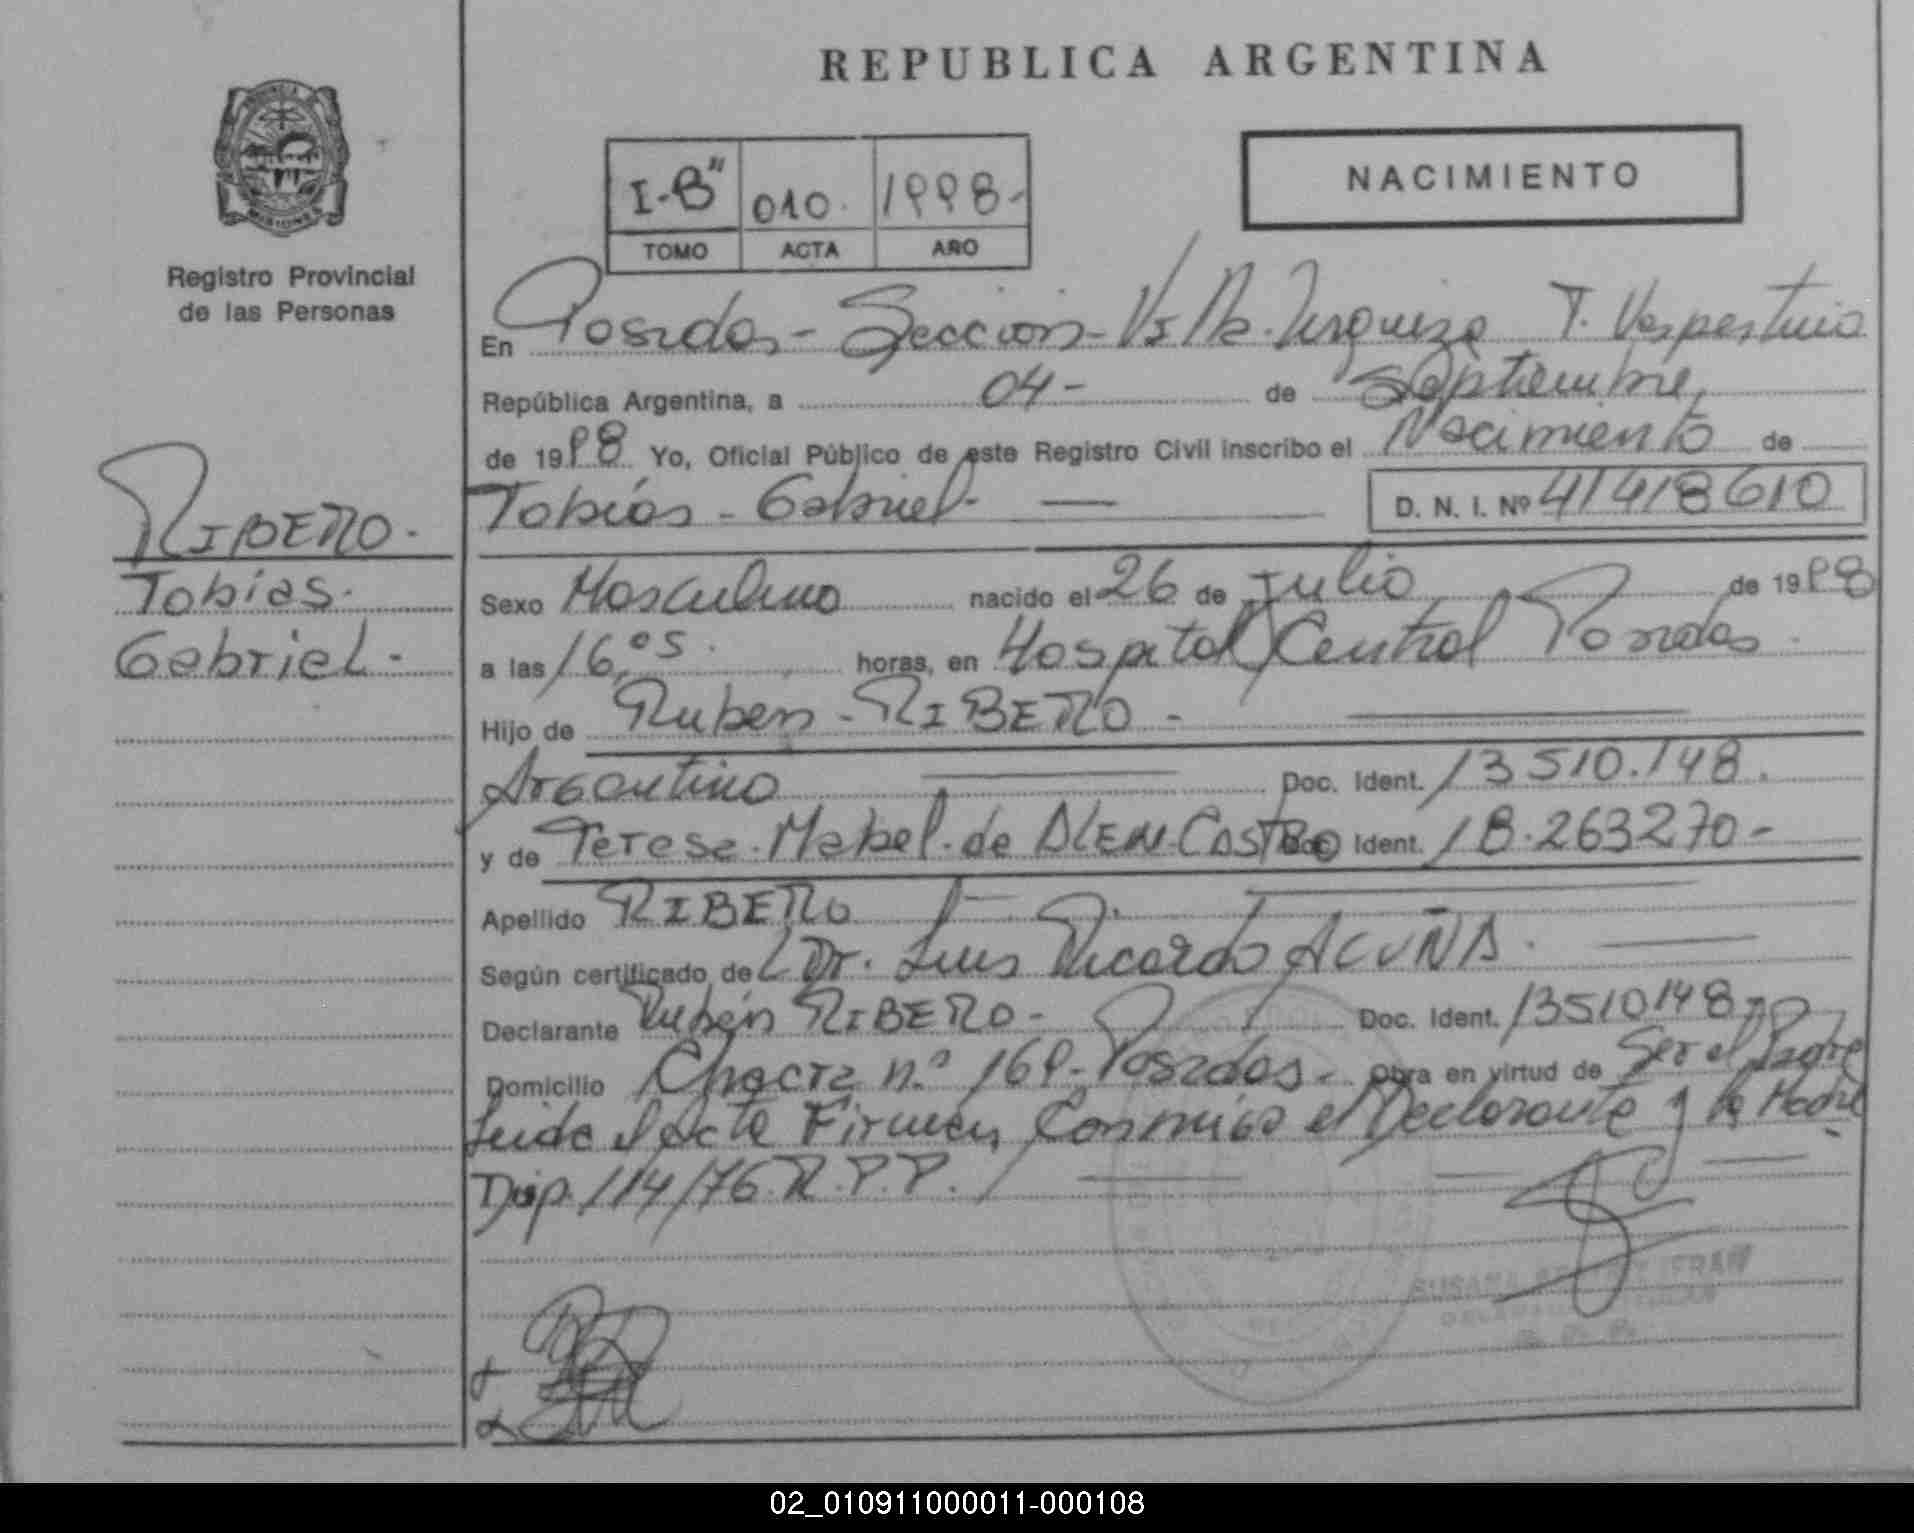 REPUBLICA ARGENTINA
PROVINCIA
MISIONES
Registro Provincial
de las Personas
I-B" 010. 1998-
TOMO ACTA AÑO
NACIMIENTO
En Posadas - Sección - Villa Urquiza T. Vespertino
República Argentina, a 04 - de Septiembre,
de 1998 Yo, Oficial Público de este Registro Civil inscribo el Nacimiento de
Tobías - Gabriel - D. N. I. Nº 41418610
RIBERO.
Tobias.
Gabriel -
Sexo Masculino nacido el 26 de Julio de 1998
a las 16,05. horas, en Hospital Central Posadas.
Hijo de Ruben - RIBERO -
Argentino Doc. Ident. 13510.148.
y de Teresa Mabel de ALENCASTRO Doc. Ident. 18.263270-
Apellido RIBERO
Según certificado de Dr. Luis Ricardo ACUÑA.
Declarante Rubén RIBERO - Doc. Ident. 13510148
Domicilio Chacra n.º 169 - Posadas. Obra en virtud de Ser el Padre
Leida el Acta Firman Conmigo el Declarante y la Madre
Disp. 114/76 R.P.P.
SUSANA
02_010911000011-000108